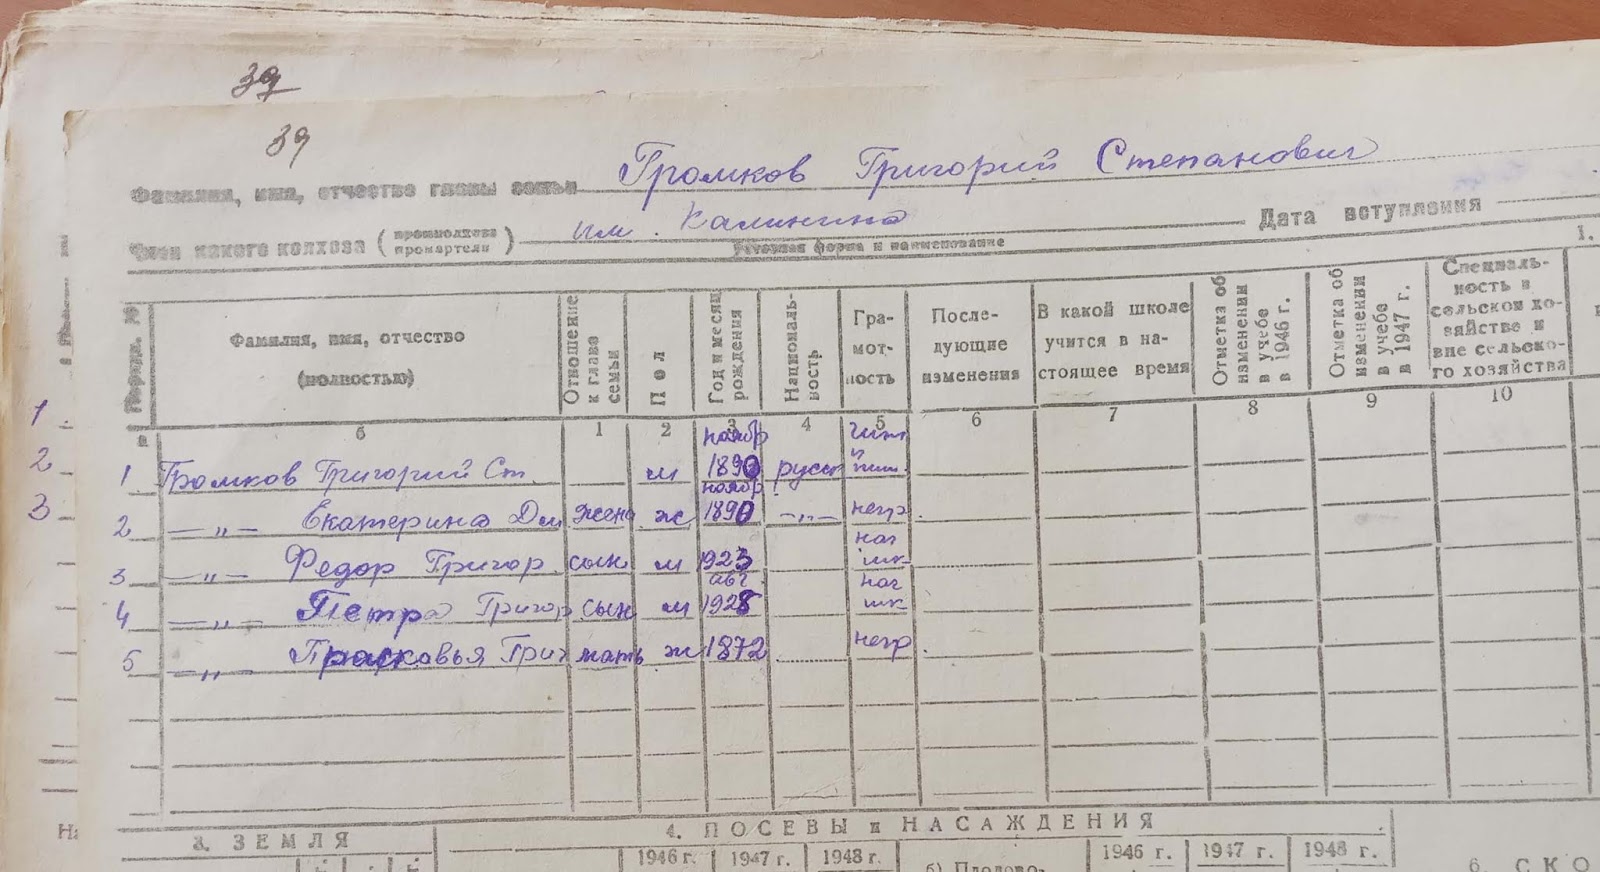 39
39
Фамилия, имя, отчество главы семьи Громков Григорий Степанович
Член какого колхоза (промколхоза промартели) им. Калинина Дата вступления
уставная форма и наименование
I.
Порядк. № Фамилия, имя, отчество (полностью) Отношение к главе семьи Пол Год и месяц рождения Националь-ность Гра-мот-ность После-дующие изменения В какой школе учится в на-стоящее время Отметка об изменении в учебе в 1946 г. Отметка об изменении в учебе в 1947 г. Специаль-ность в сельском хо-зяйстве и вне сельско-го хозяйства
а б 1 2 3 4 5 6 7 8 9 10
1 Громков Григорий Ст. м ноябр 1890 русск чит и пиш
2 —„— Екатерина Дм жена ж ноябр 1890 —„— негр.
3 —„— Федор Григор. сын м 1923 нач шк
4 —„— Петра Григор сын м авг 1928 нач шк
5 —„— Прасковья Григ мать ж 1872 негр.
1
2
3
3. ЗЕМЛЯ
4. ПОСЕВЫ и НАСАЖДЕНИЯ
1946 г. 1947 г. 1948 г. б) Плодово- 1946 г. 1947 г. 1948 г.
6. СКО
На